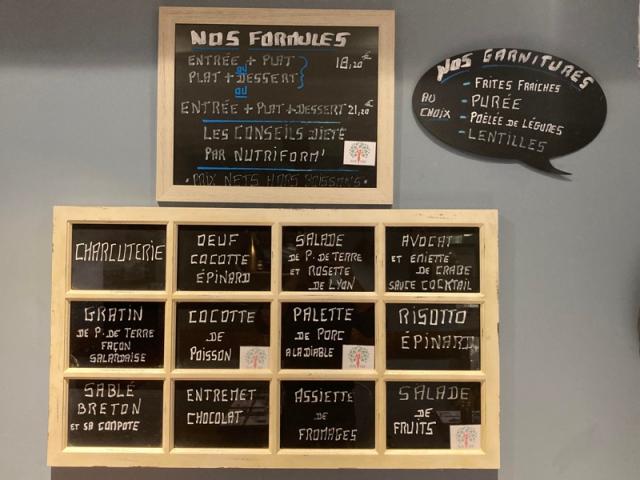 NOS FORMULES
ENTRÉE + PLAT
OU
PLAT + DESSERT
18,20€
OU
ENTRÉE + PLAT + DESSERT 21,20€
LES CONSEILS DIÉTÉ
PAR NUTRIFORM'
PRIX NETS HORS BOISSONS
NOS GARNITURES
AU CHOIX
- FRITES FRAICHES
- PURÉE
- POÊLÉE DE LÉGUMES
- LENTILLES
CHARCUTERIE
OEUF
COCOTTE
ÉPINARD
SALADE
DE P. DE TERRE
ET ROSETTE
DE LYON
AVOCAT
ET EMIETTÉ
DE CRABE
SAUCE COCKTAIL
GRATIN
DE P. DE TERRE
FAÇON
SALARDAISE
COCOTTE
DE
POISSON
PALETTE
DE PORC
A LA DIABLE
RISOTTO
ÉPINARD
SABLÉ
BRETON
ET SA COMPOTE
ENTREMET
CHOCOLAT
ASSIETTE
DE
FROMAGES
SALADE
DE
FRUITS